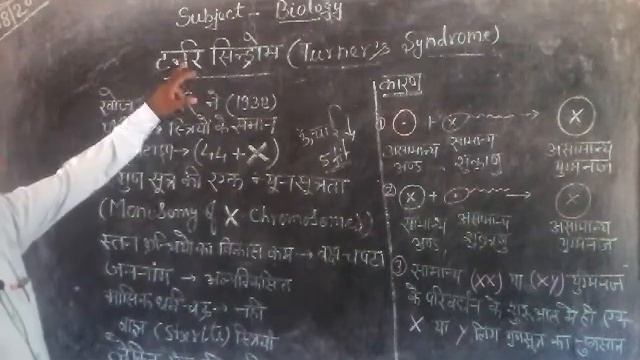 Subject - Biology
टर्नर सिन्ड्रोम (Turner's Syndrome)
खोज ने (1932)
स्त्रियों के समान
→ (44 + X)
गुण सूत्र की एक न्यून सूत्रता
(Monosomy of X Chromosome)
स्तन ग्रन्थियों का विकास कम → वक्ष चपटा
जननांग → अल्पविकसित
मासिक धर्म चक्र → नही
बांझ स्त्रियाँ
कारण
① + X → X
असामान्य अण्ड सामान्य शुक्राणु असामान्य युग्मनज
② X + → X
सामान्य अण्ड असामान्य शुक्राणु असामान्य युग्मनज
③ सामान्य (XX) या (XY) युग्मनज
के परिवर्तन के शुरुआत में ही एक
X या Y लिंग गुणसूत्र का नुकसान